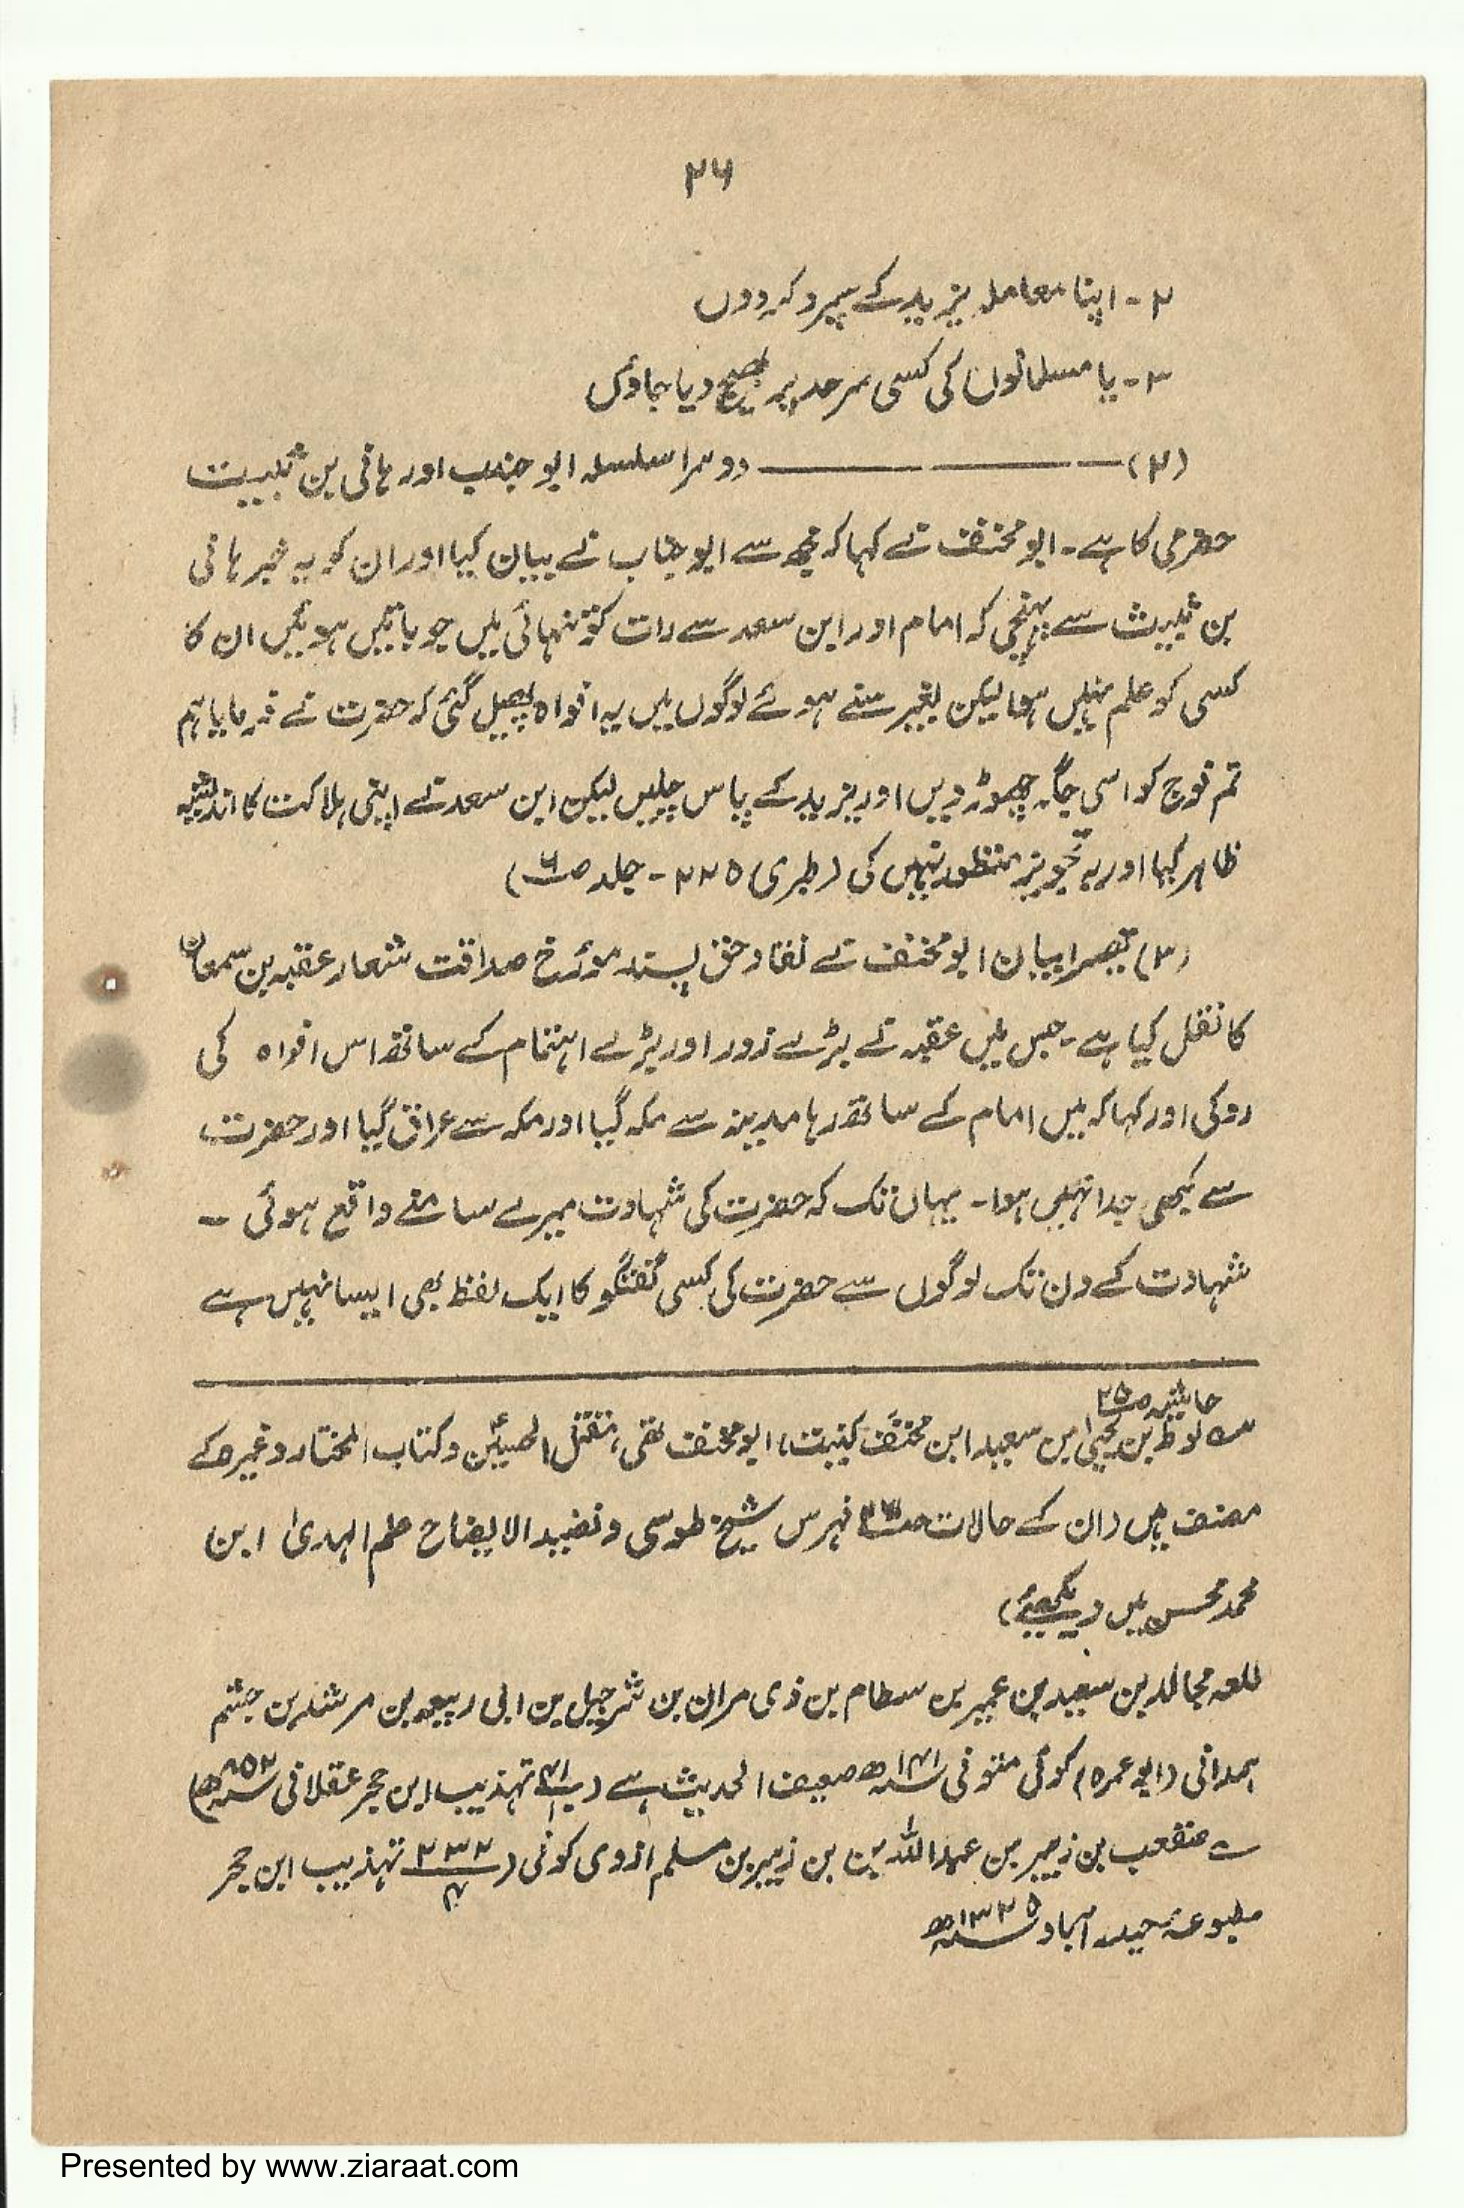 ۲۶
۲- اپنا معاملہ یزید کے سپرد کردوں
۳- یا مسلمانوں کی کسی سرحد پر بھیج دیا جاؤں
(۲) ——— دوسرا سلسلہ ابو جناب اور ہانی بن ثبیت
حضرمی کا ہے۔ ابو مخنف نے کہا کہ مجھ سے ابو جناب نے بیان کیا اور ان کو یہ خبر ہانی
بن ثبیث سے پہنچی کہ امام اور ابن سعد سے رات کو تنہائی میں جو باتیں ہوئیں ان کا
کسی کو علم نہیں ہوا لیکن بغیر سنے ہوئے لوگوں میں یہ افواہ پھیل گئی کہ حضرت نے فرمایا ہم
تم فوج کو اسی جگہ چھوڑ دیں اور یزید کے پاس چلیں لیکن ابن سعد نے اپنی ہلاکت کا اندیشہ
ظاہر کیا اور یہ تجویز منظور نہیں کی (طبری ۲۲۵ - جلد ۶)
(۳) تیسرا بیان ابو مخنف نے نقاد حق پسند مورخ صداقت شعار عقبہ بن سمعان
کا نقل کیا ہے۔ جس میں عقبہ نے بڑے زور اور بڑے اہتمام کے ساتھ اس افواہ کی
روکی اور کہا کہ میں امام کے ساتھ رہا مدینہ سے مکہ گیا اور مکہ سے عراق گیا اور حضرت
سے کبھی جدا نہیں ہوا۔ یہاں تک کہ حضرت کی شہادت میرے سامنے واقع ہوئی ۔
شہادت کے دن تک لوگوں سے حضرت کی کسی گفتگو کا ایک لفظ بھی ایسا نہیں ہے
حاشیہ ص۲۵
لوط بن یحییٰ ابن سعید ابن مخنف کنیت، ابو مخنف تھی، مقتل الحسین و کتاب المختار وغیرہ کے
مصنف ہیں (ان کے حالات فہرس شیخ طوسی و نضید الایضاح علم الہدیٰ ابن
محمد محسن میں دیکھیئے)
للعہ مجالد بن سعید بن عمیر بن سطام بن ذی مران بن شرجیل بن ابی ربیعہ بن مرشد بن جثم
ہمدانی (ابو عمرہ) کوئی متوفی ۱۴۱ھ ضعیف الحدیث ہے ( تہذیب ابن حجر عقلانی ۸۵۲ھ)
صقعب بن زہیر بن عبداللہ بن زہیر بن مسلم ازدی کوفی (۴/۲۳۲ تہذیب ابن حجر
مطبوعہ حیدر آباد ۱۳۲۵ھ
Presented by www.ziaraat.com